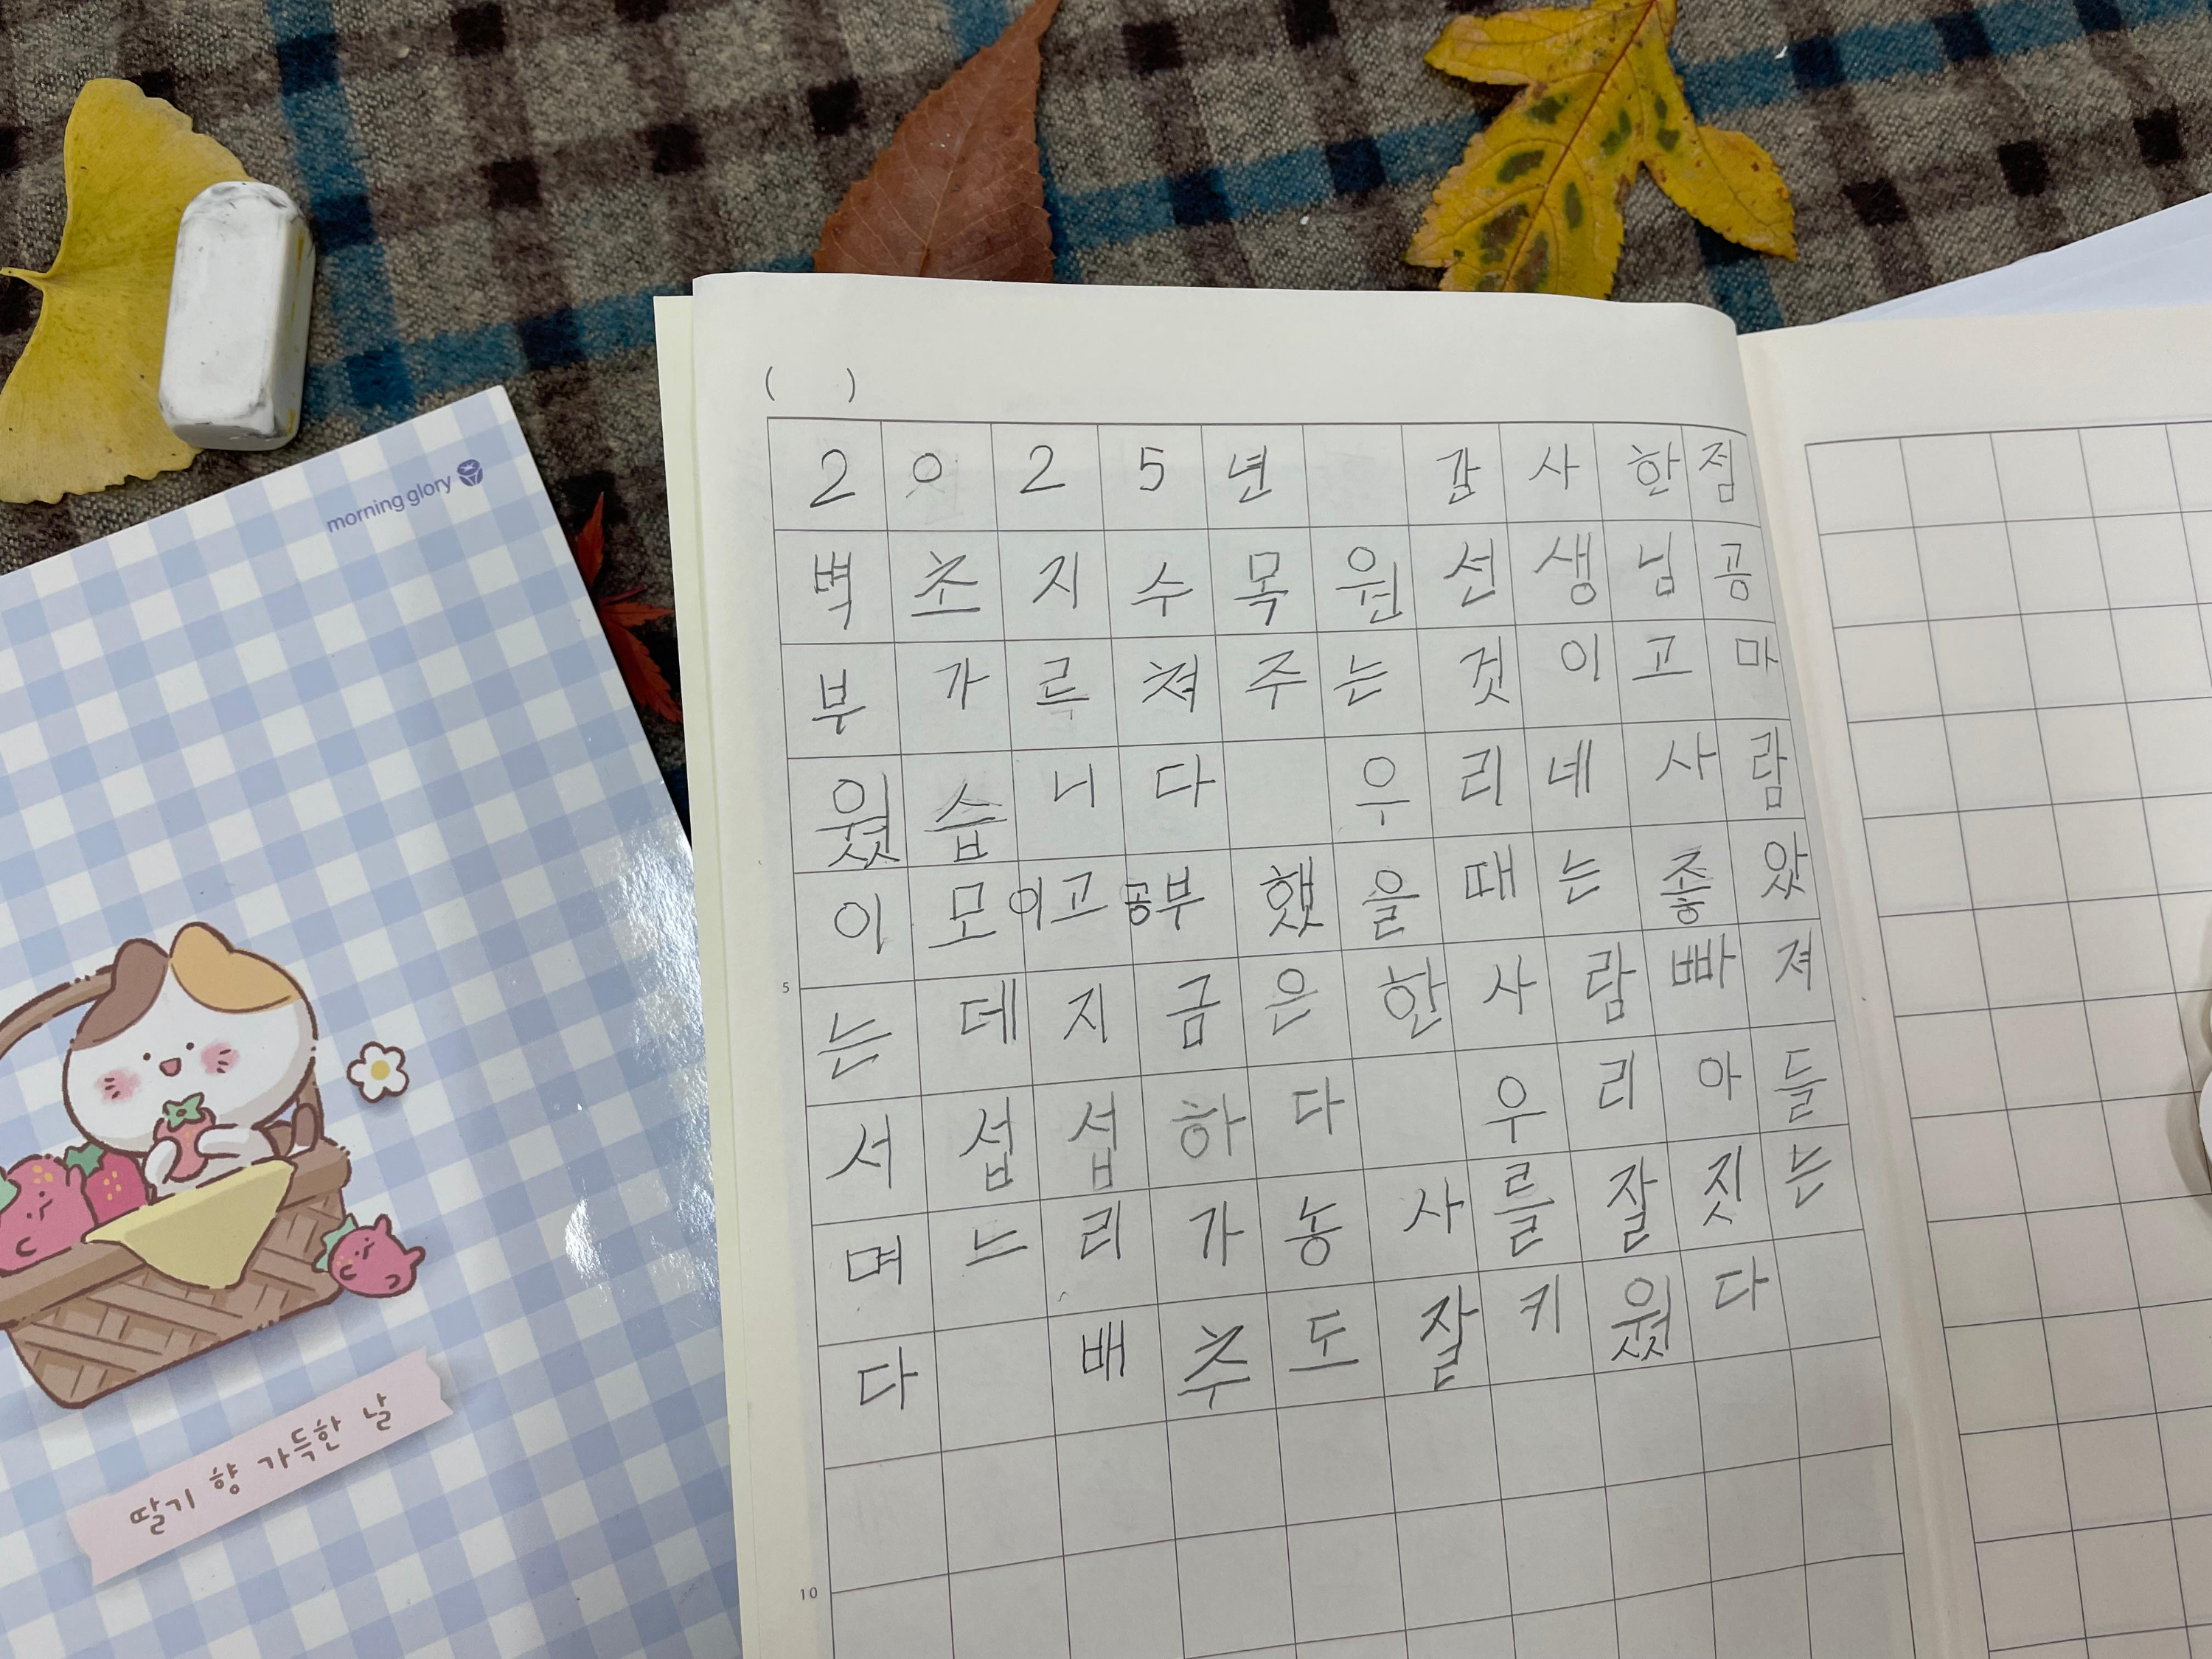 morning glory
딸기 향 가득한 날
( )
2025년 감사한점
벽초지수목원선생님공
부가르쳐주는것이고마
웠습니다 우리네사람
이모이고공부했을때는좋았
는데지금은한사람빠져
서섭섭하다 우리아들
며느리가농사를잘짓는
다 배추도잘키웠다
5
10